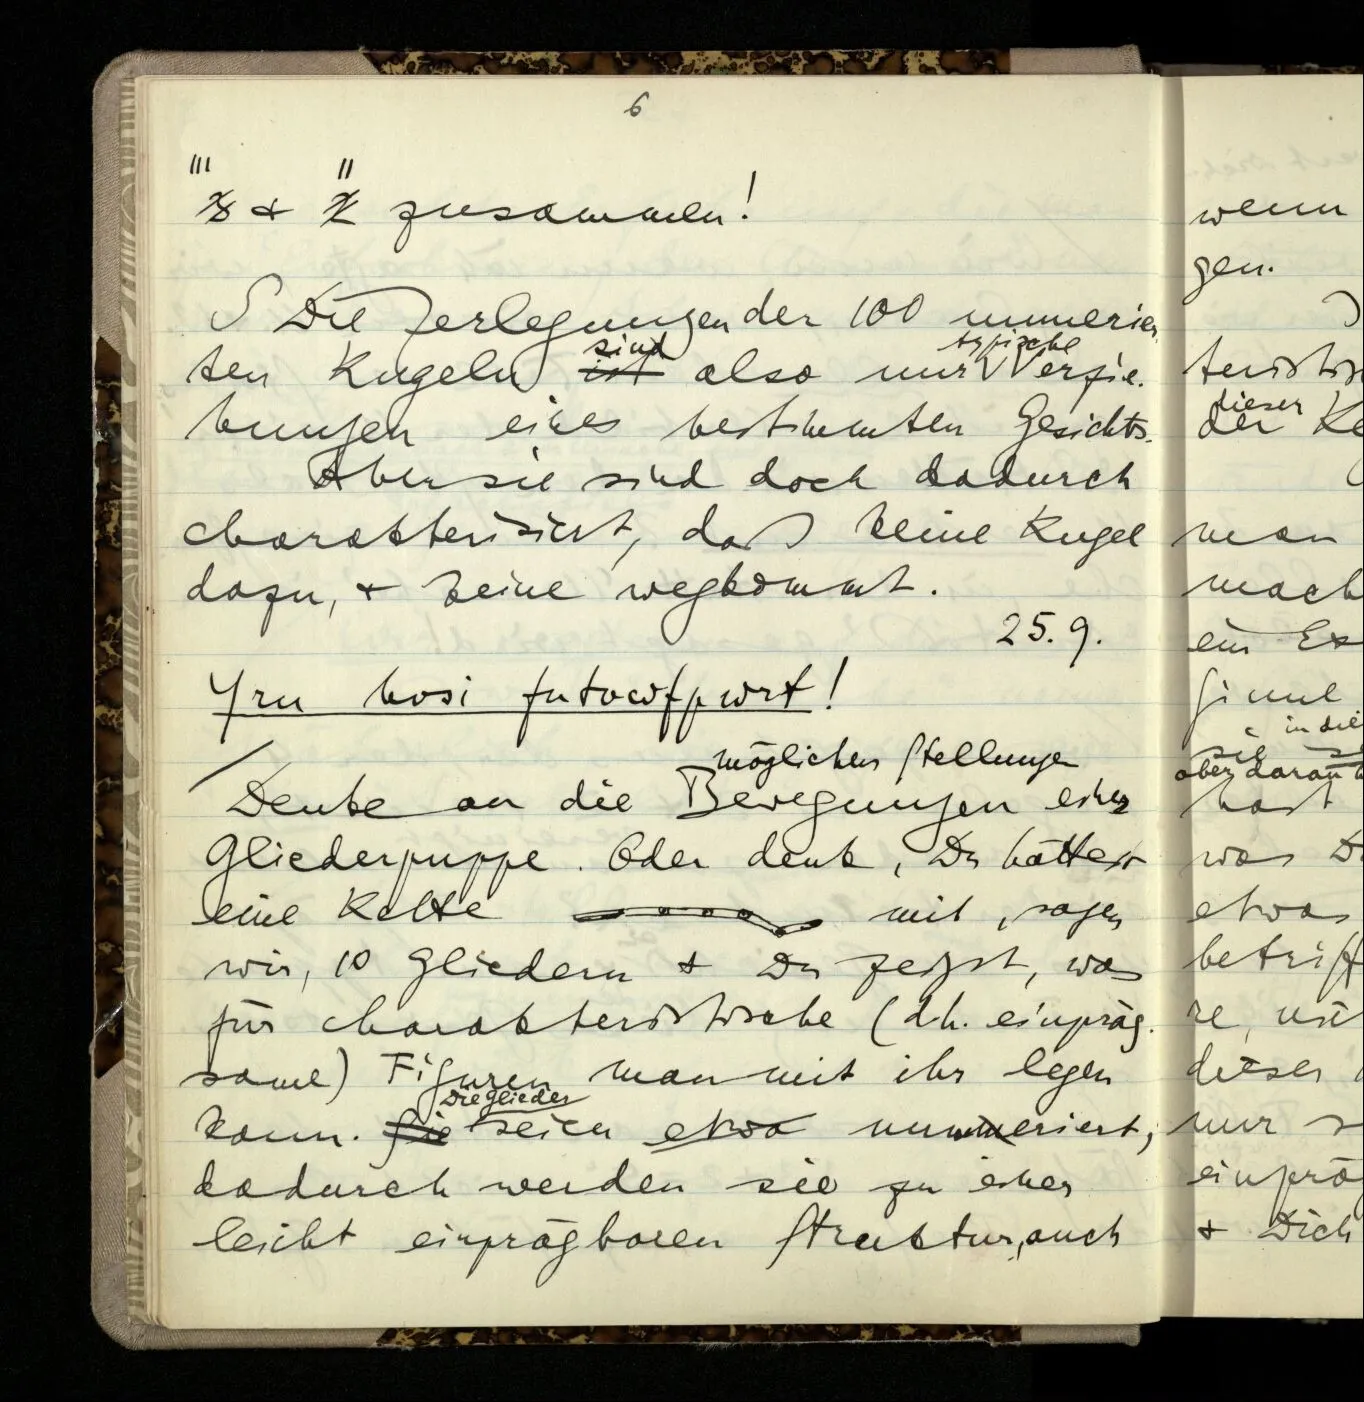 6
''' ''
& zusammen!
S Die Zerlegungen der 100 numerier-
sind typische
ten Kugeln ist also nur Verzie-
hungen eines bestimmten Gesichts.
Aber sie sind doch dadurch
charakterisiert, daß keine Kugel
dazu, & keine wegkommt.
25.9.
Yru hosi futowfpwrt!
möglichen Stellungen
/ Denke an die Bewegungen einer
Gliederpuppe. Oder denk, Du hättest
eine Kette mit, sagen
wir, 10 Gliedern & Du zeigst, was
für charakteristische (d.h. einpräg-
same) Figuren man mit ihr legen
die Glieder
kann. Sie seien etwa nummeriert;
dadurch werden sie zu einer
leicht einprägbaren Struktur, auch
wenn
gen.
dieser
der
man
in die
aber daran
hast
was
etwas
betriff
re
dieser
nur
einprä
& Dich